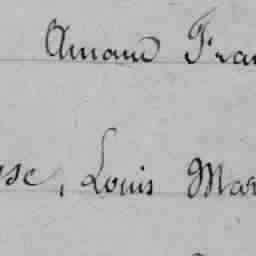 Amand Fran
sse, Louis Mar